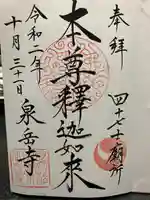 奉拝
四十七士廟所
本尊釋迦如来
令和二年
十月三十一日
泉岳寺